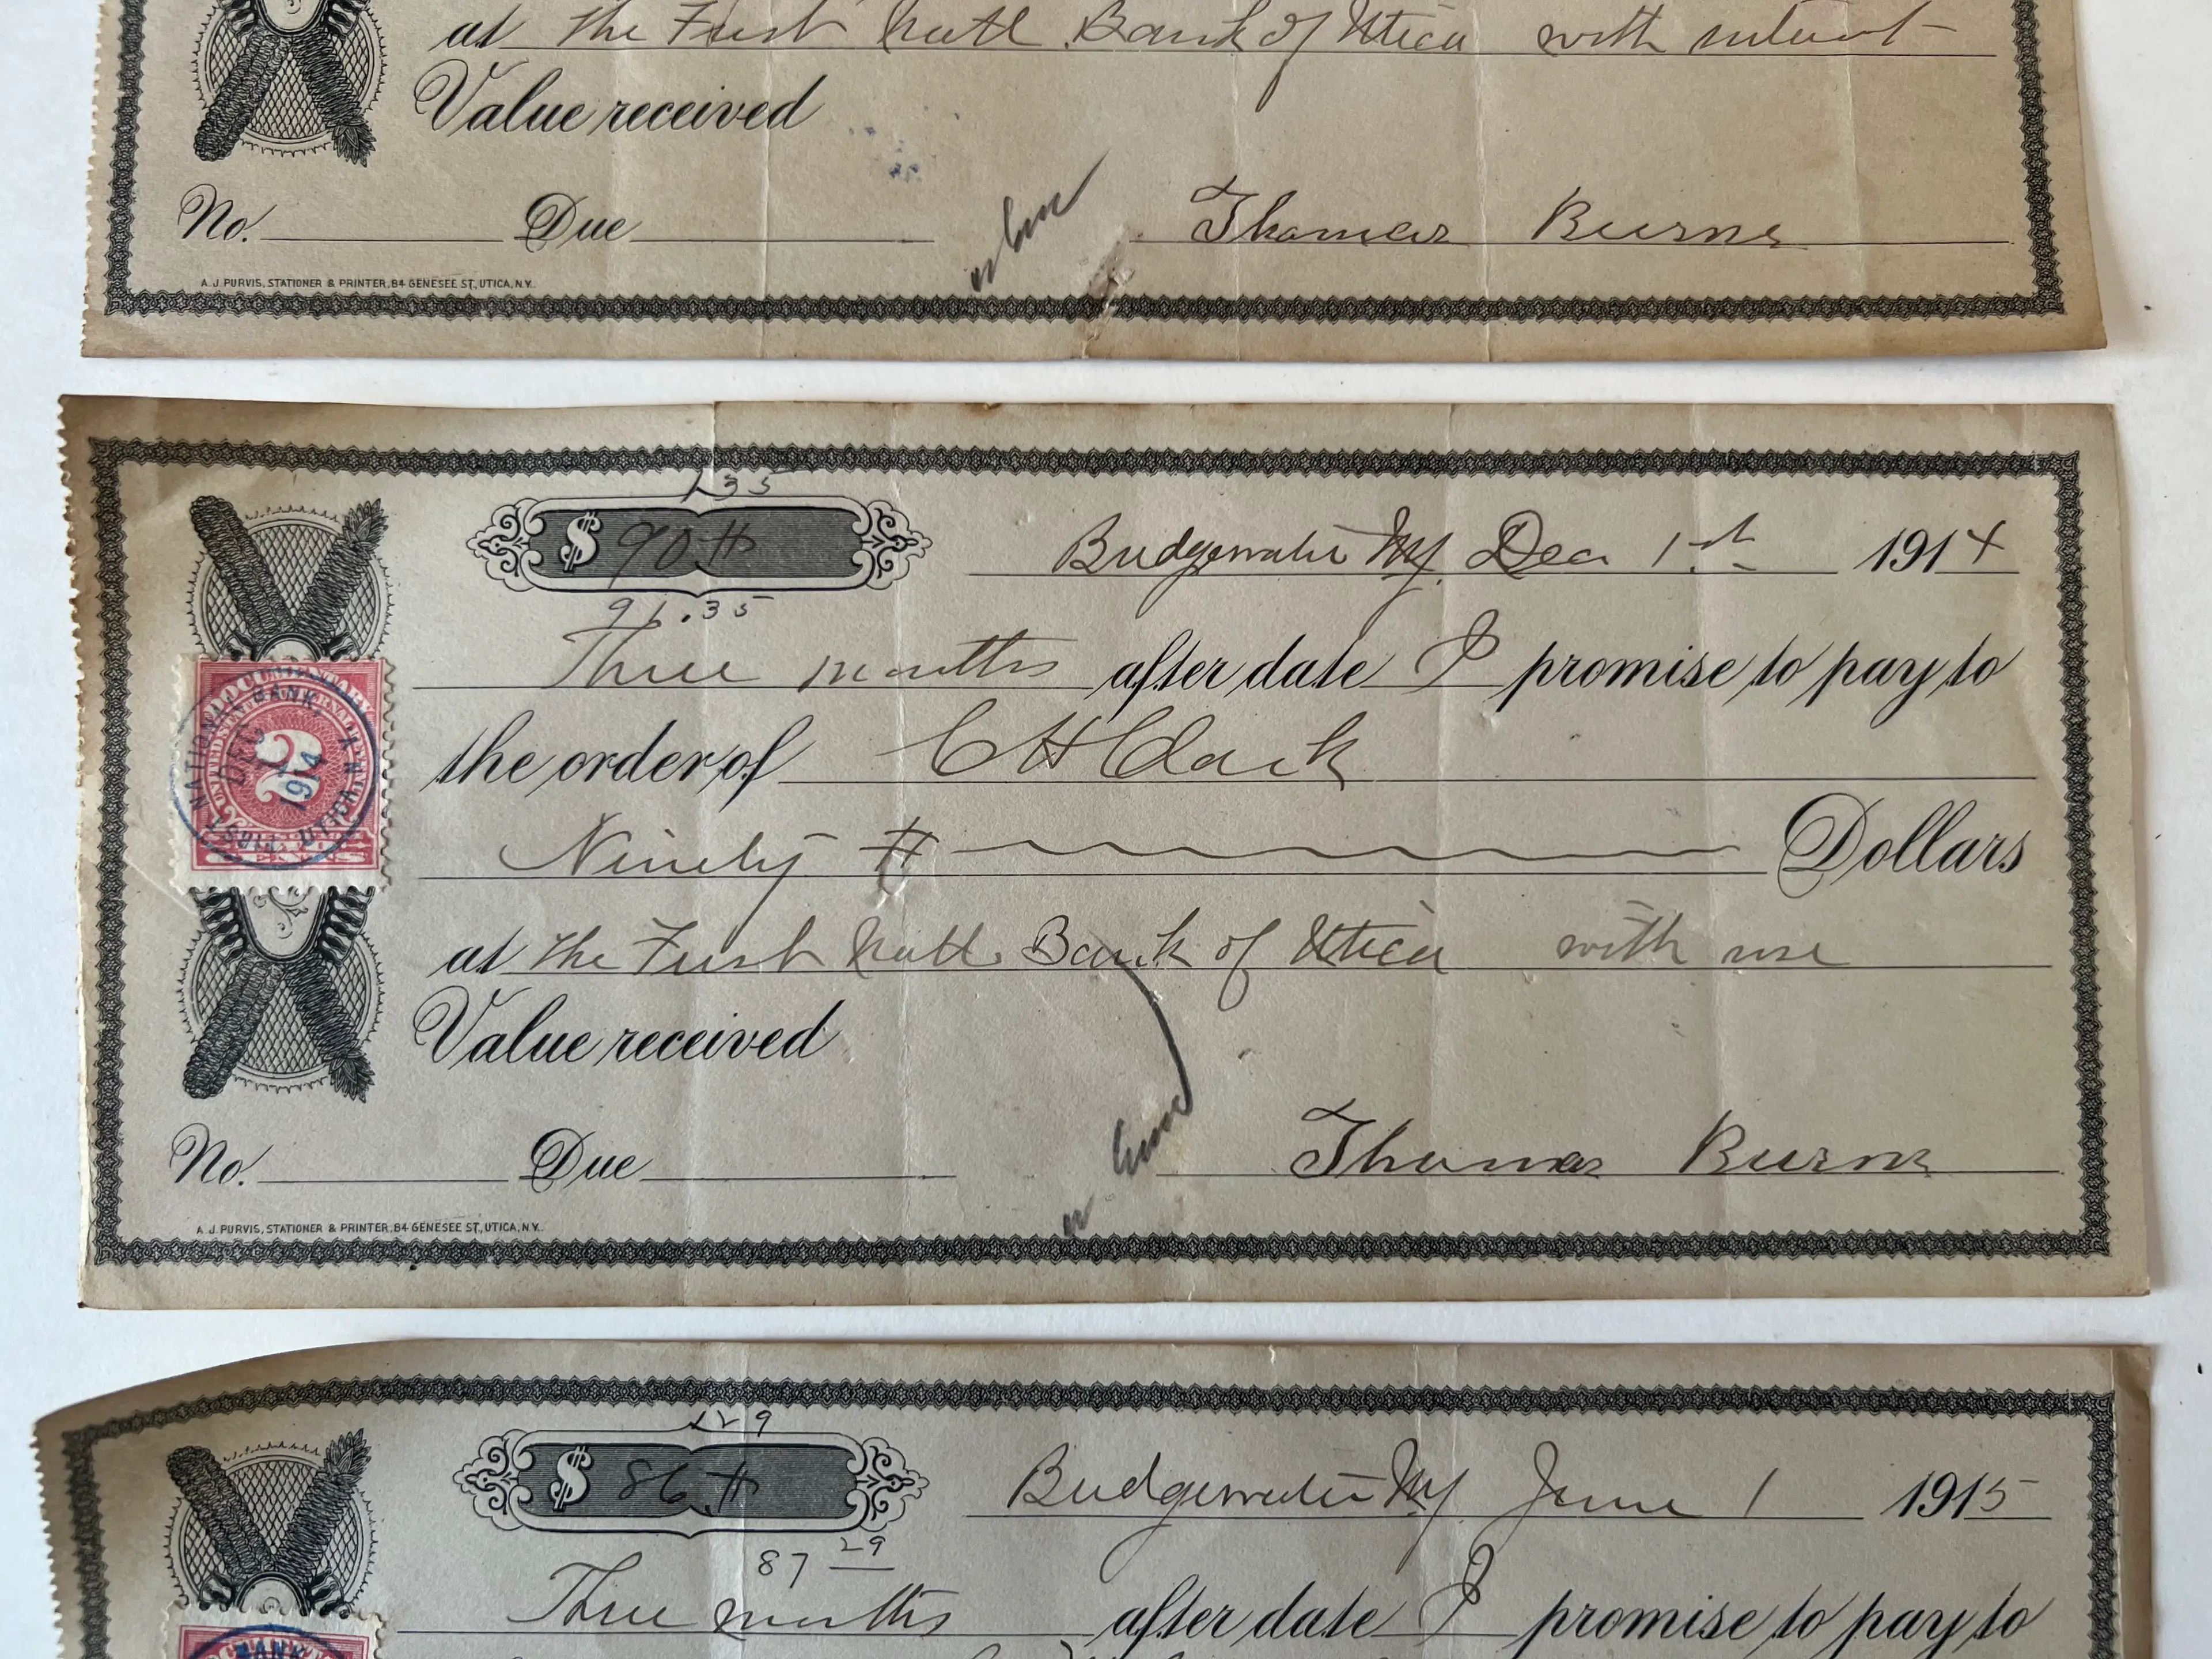 at the First Natl Bank of Utica with interest
Value received
No. Due
Thomas Burns
A. J. PURVIS, STATIONER & PRINTER, 84 GENESEE ST, UTICA, N.Y.
1 35
$ 90 #
Bridgewater NY. Dec 1st 1914
91.35
Three months after date I promise to pay to
the order of C H Clark
DOCUMENTARY
UNITED STATES INTERNAL REVENUE
2
CENTS
FIRST NATIONAL BANK, UTICA, N.Y.
DEC 1914
Ninety # Dollars
at the First Natl. Bank of Utica with use
Value received
No. Due
Thomas Burns
A. J. PURVIS, STATIONER & PRINTER, 84 GENESEE ST, UTICA, N.Y.
1 29
$ 86 #
Bridgewater NY. June 1 1915
87 29
Three months after date I promise to pay to
BANK